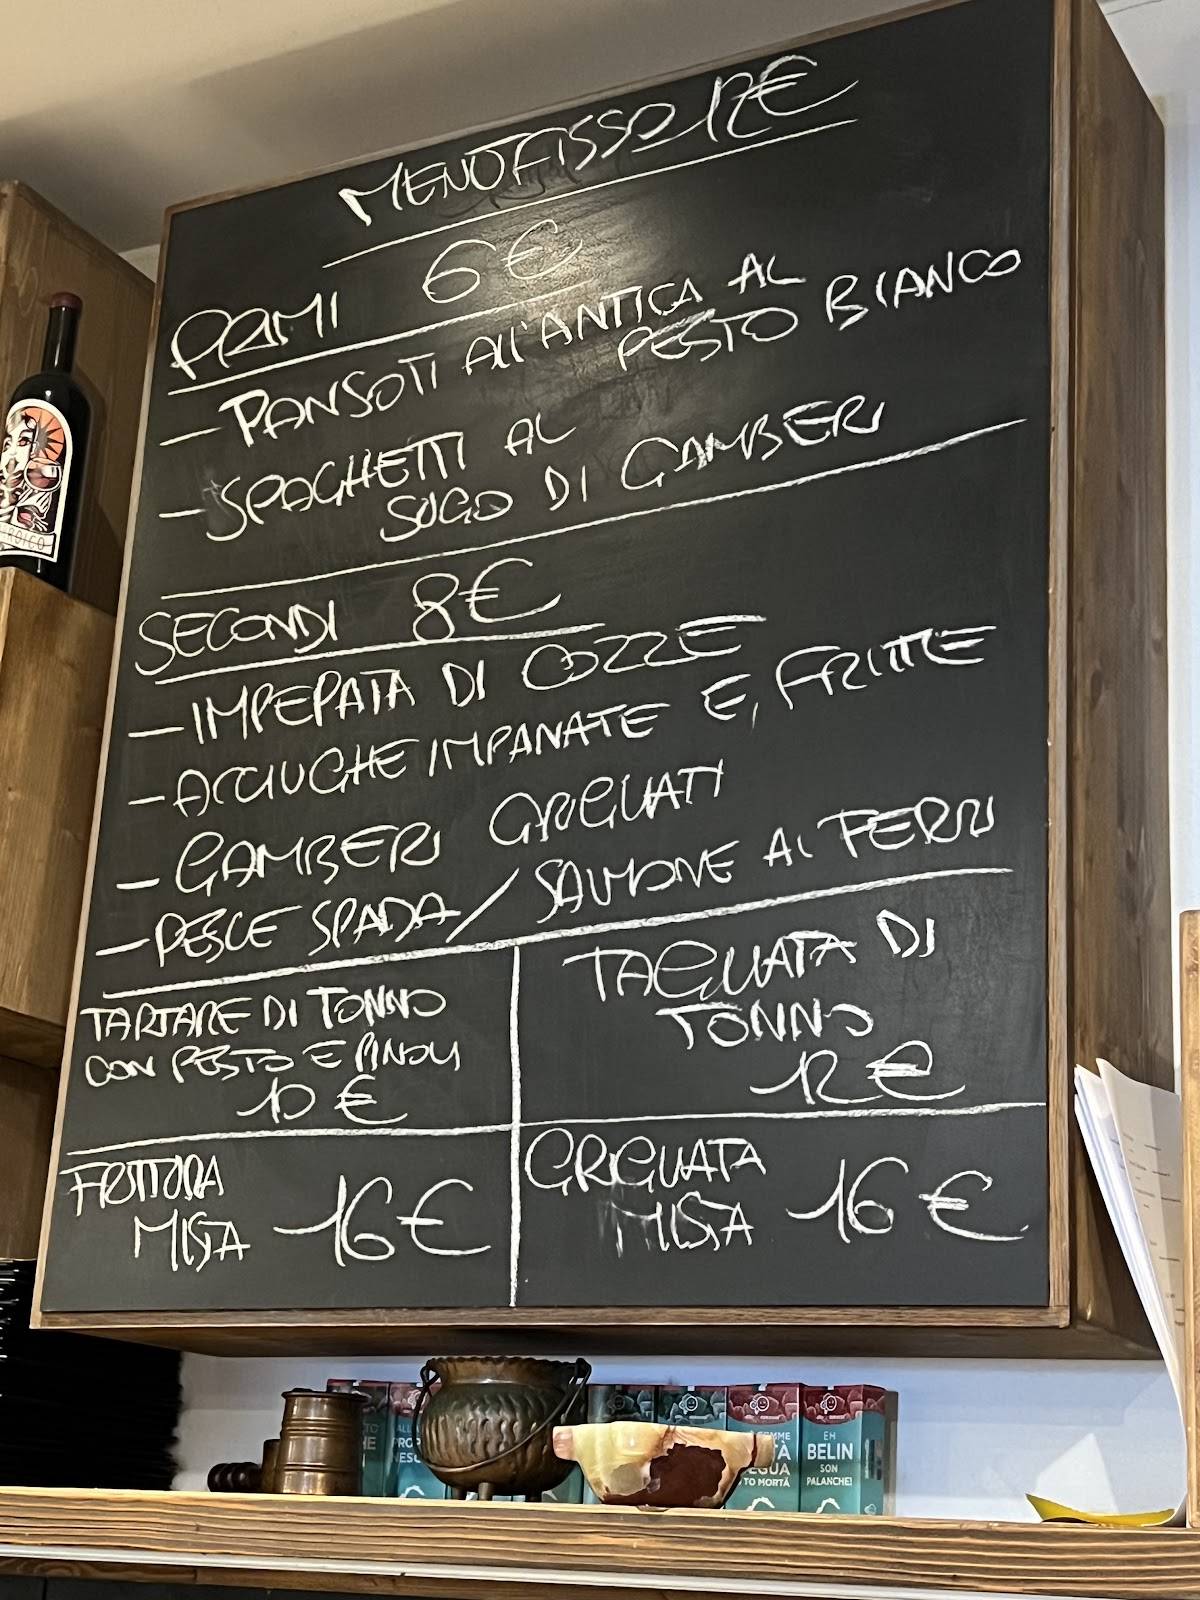 MENÙ FISSO 12€
PRIMI 6€
- PANSOTI ALL'ANTICA AL
PESTO BIANCO
- SPAGHETTI AL
SUGO DI GAMBERI
SECONDI 8€
- IMPEPATA DI COZZE
- ACCIUGHE IMPANATE E, FRITTE
- GAMBERI GRIGLIATI
- PESCE SPADA / SALMONE AI FERRI
TARTARE DI TONNO
CON PESTO E PINOLI
10 €
TAGLIATA DI
TONNO
12€
FRITTURA
MISTA 16€
GRIGLIATA
MISTA 16€
EH
BELIN
SON
PALANCHE!
TO MORTÂ